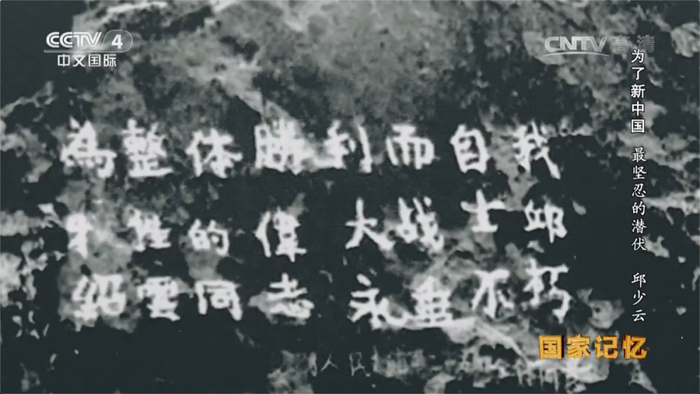 CCTV 4
中文国际
CNTV 高清
為整体勝利而自我
牺牲的偉大战士邱
紹雲同志永垂不朽
为了新中国 最坚忍的潜伏 邱少云
国家记忆